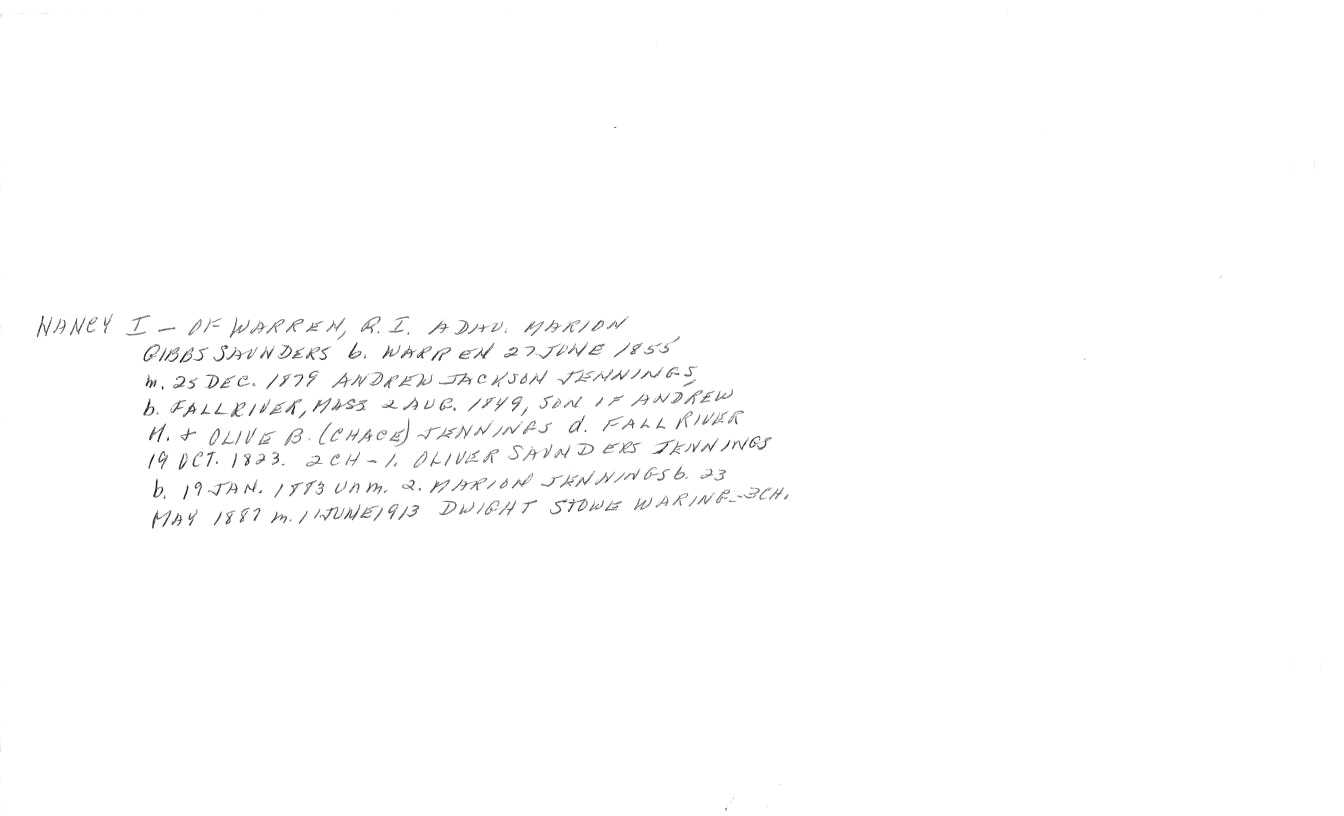 NANCY I - OF WARREN, R.I. A DAU. MARION
GIBBS SAUNDERS b. WARREN 27 JUNE 1855
m. 25 DEC. 1879 ANDREW JACKSON JENNINGS,
b. FALL RIVER, MASS 2 AUG. 1849, SON OF ANDREW
M. & OLIVE B. (CHACE) JENNINGS d. FALL RIVER
19 OCT. 1823. 2 CH - 1. OLIVER SAUNDERS JENNINGS
b. 19 JAN. 1883 unm. 2. MARION JENNINGS b. 23
MAY 1887 m. 11 JUNE 1913 DWIGHT STOWE WARING - 3 CH.